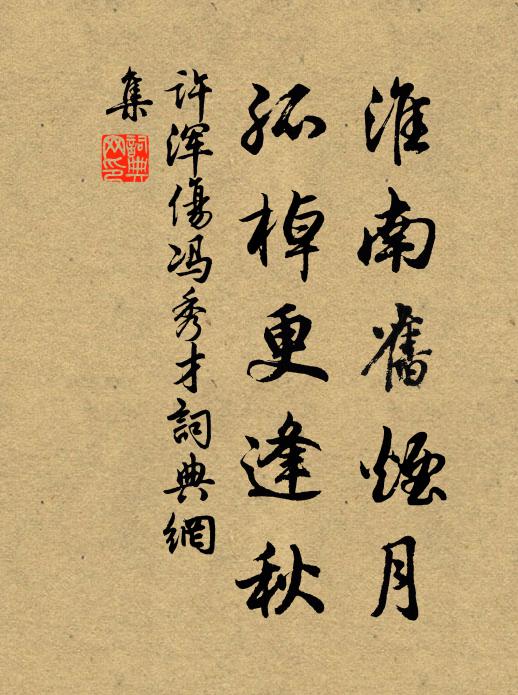 淮南舊煙月
孤棹更逢秋
许浑傷冯秀才詞典網
集
詞典網印